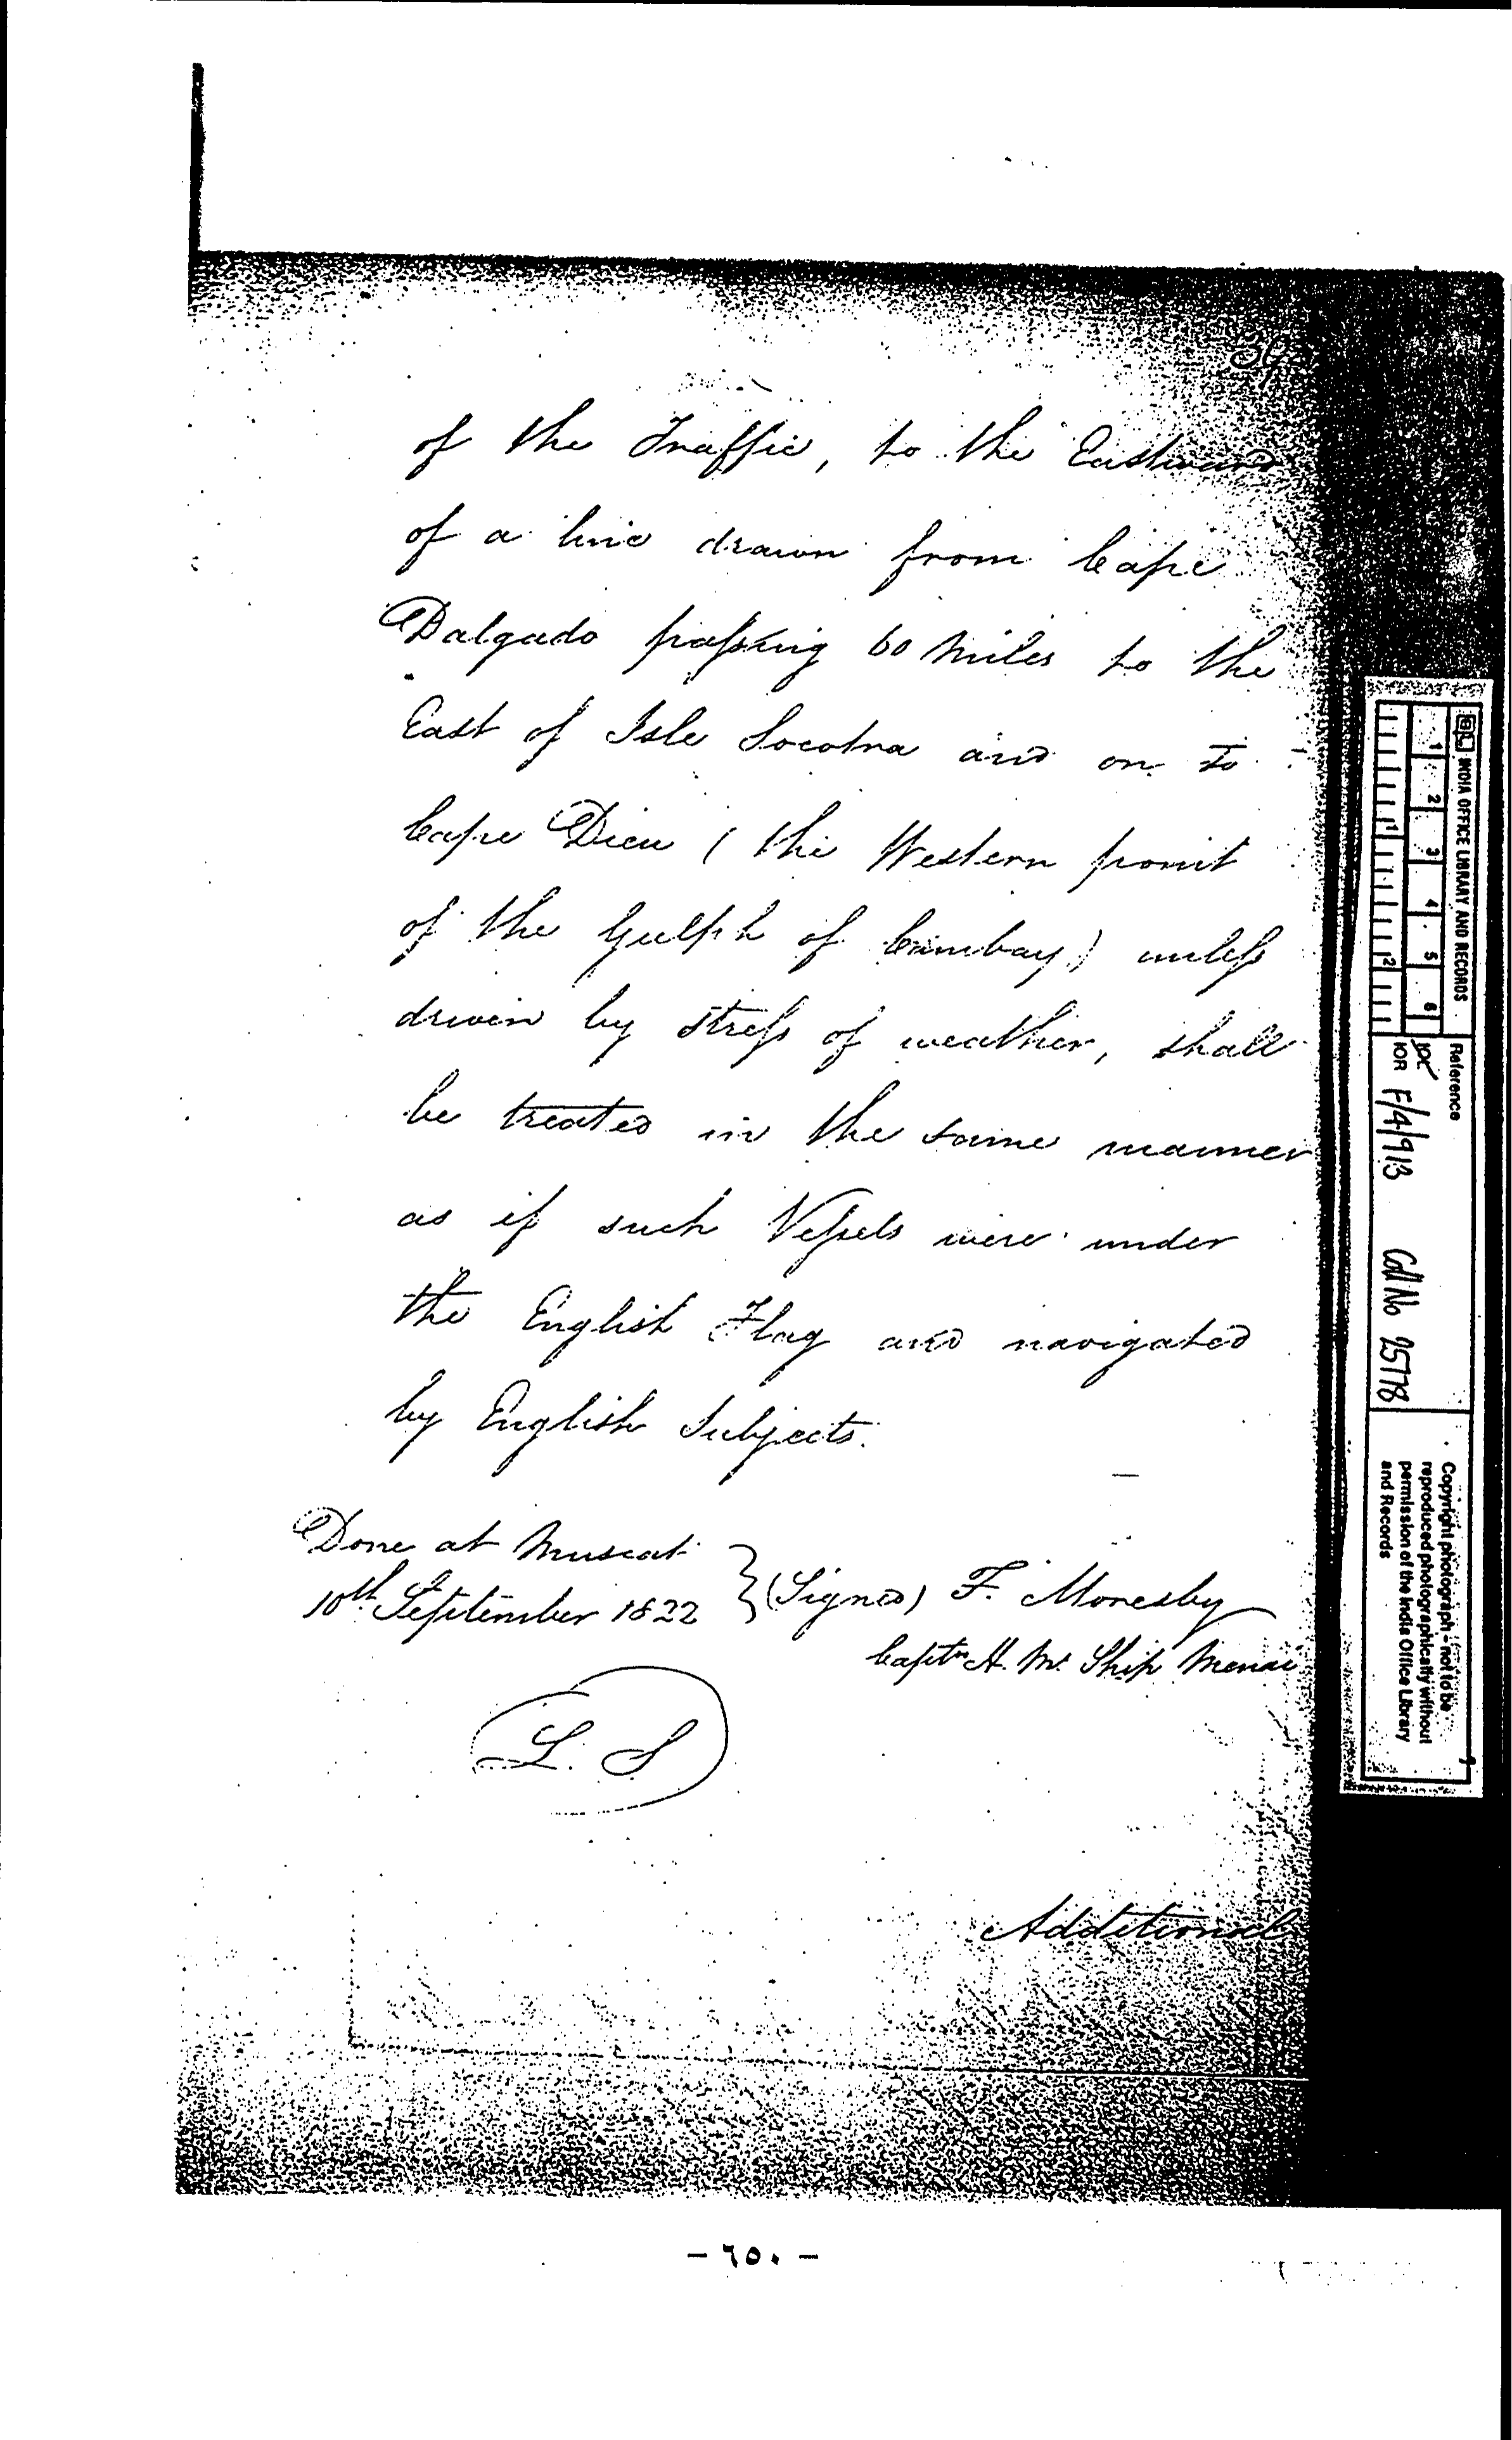 of the Traffic, to the Eastward
of a line drawn from Cape
Dalgado passing 60 Miles to the
East of Isle Socotra and on to
Cape Dieu ( the Western point
of the Gulph of Cambay) unless
driven by stress of weather, shall
be treated in the same manner
as if such Vessels were under
the English Flag and navigated
by English Subjects.
Done at Muscat
10th September 1822
(Signed) F. Moresby
Captn H. M. Ship Menai
L. S
Additional
- ٦٥٠ -
INDIA OFFICE LIBRARY AND RECORDS
1 2 3 4 5 6
1 2
Reference
IOR F/4/913 Coll No 25778
Copyright photograph - not to be
reproduced photographically without
permission of the India Office Library
and Records